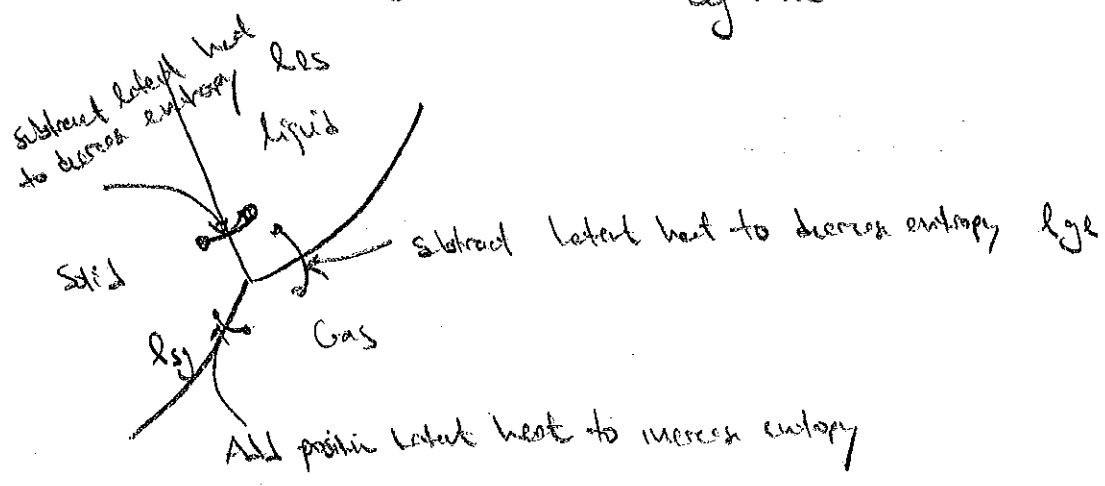 subtract latent heat
to decrease entropy lls
liquid
subtract latent heat to decrease entropy lgl
Solid
Gas
lsg
Add positive latent heat to increase entropy